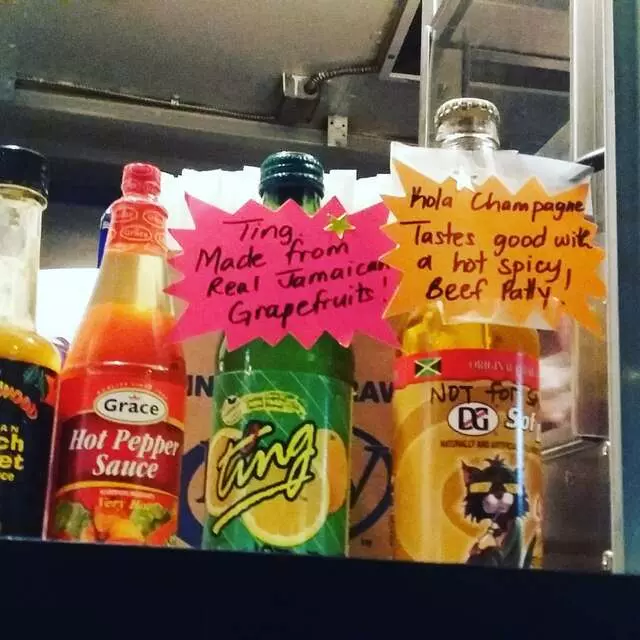 Ting.
Made from
Real Jamaican
Grapefruits!
Kola Champagne
Tastes good with
a hot spicy
Beef Patty!
Grace
Hot Pepper
Sauce
Very Hot
Ting
ORIGINAL
NOT FOR
DG
NATURALLY AND